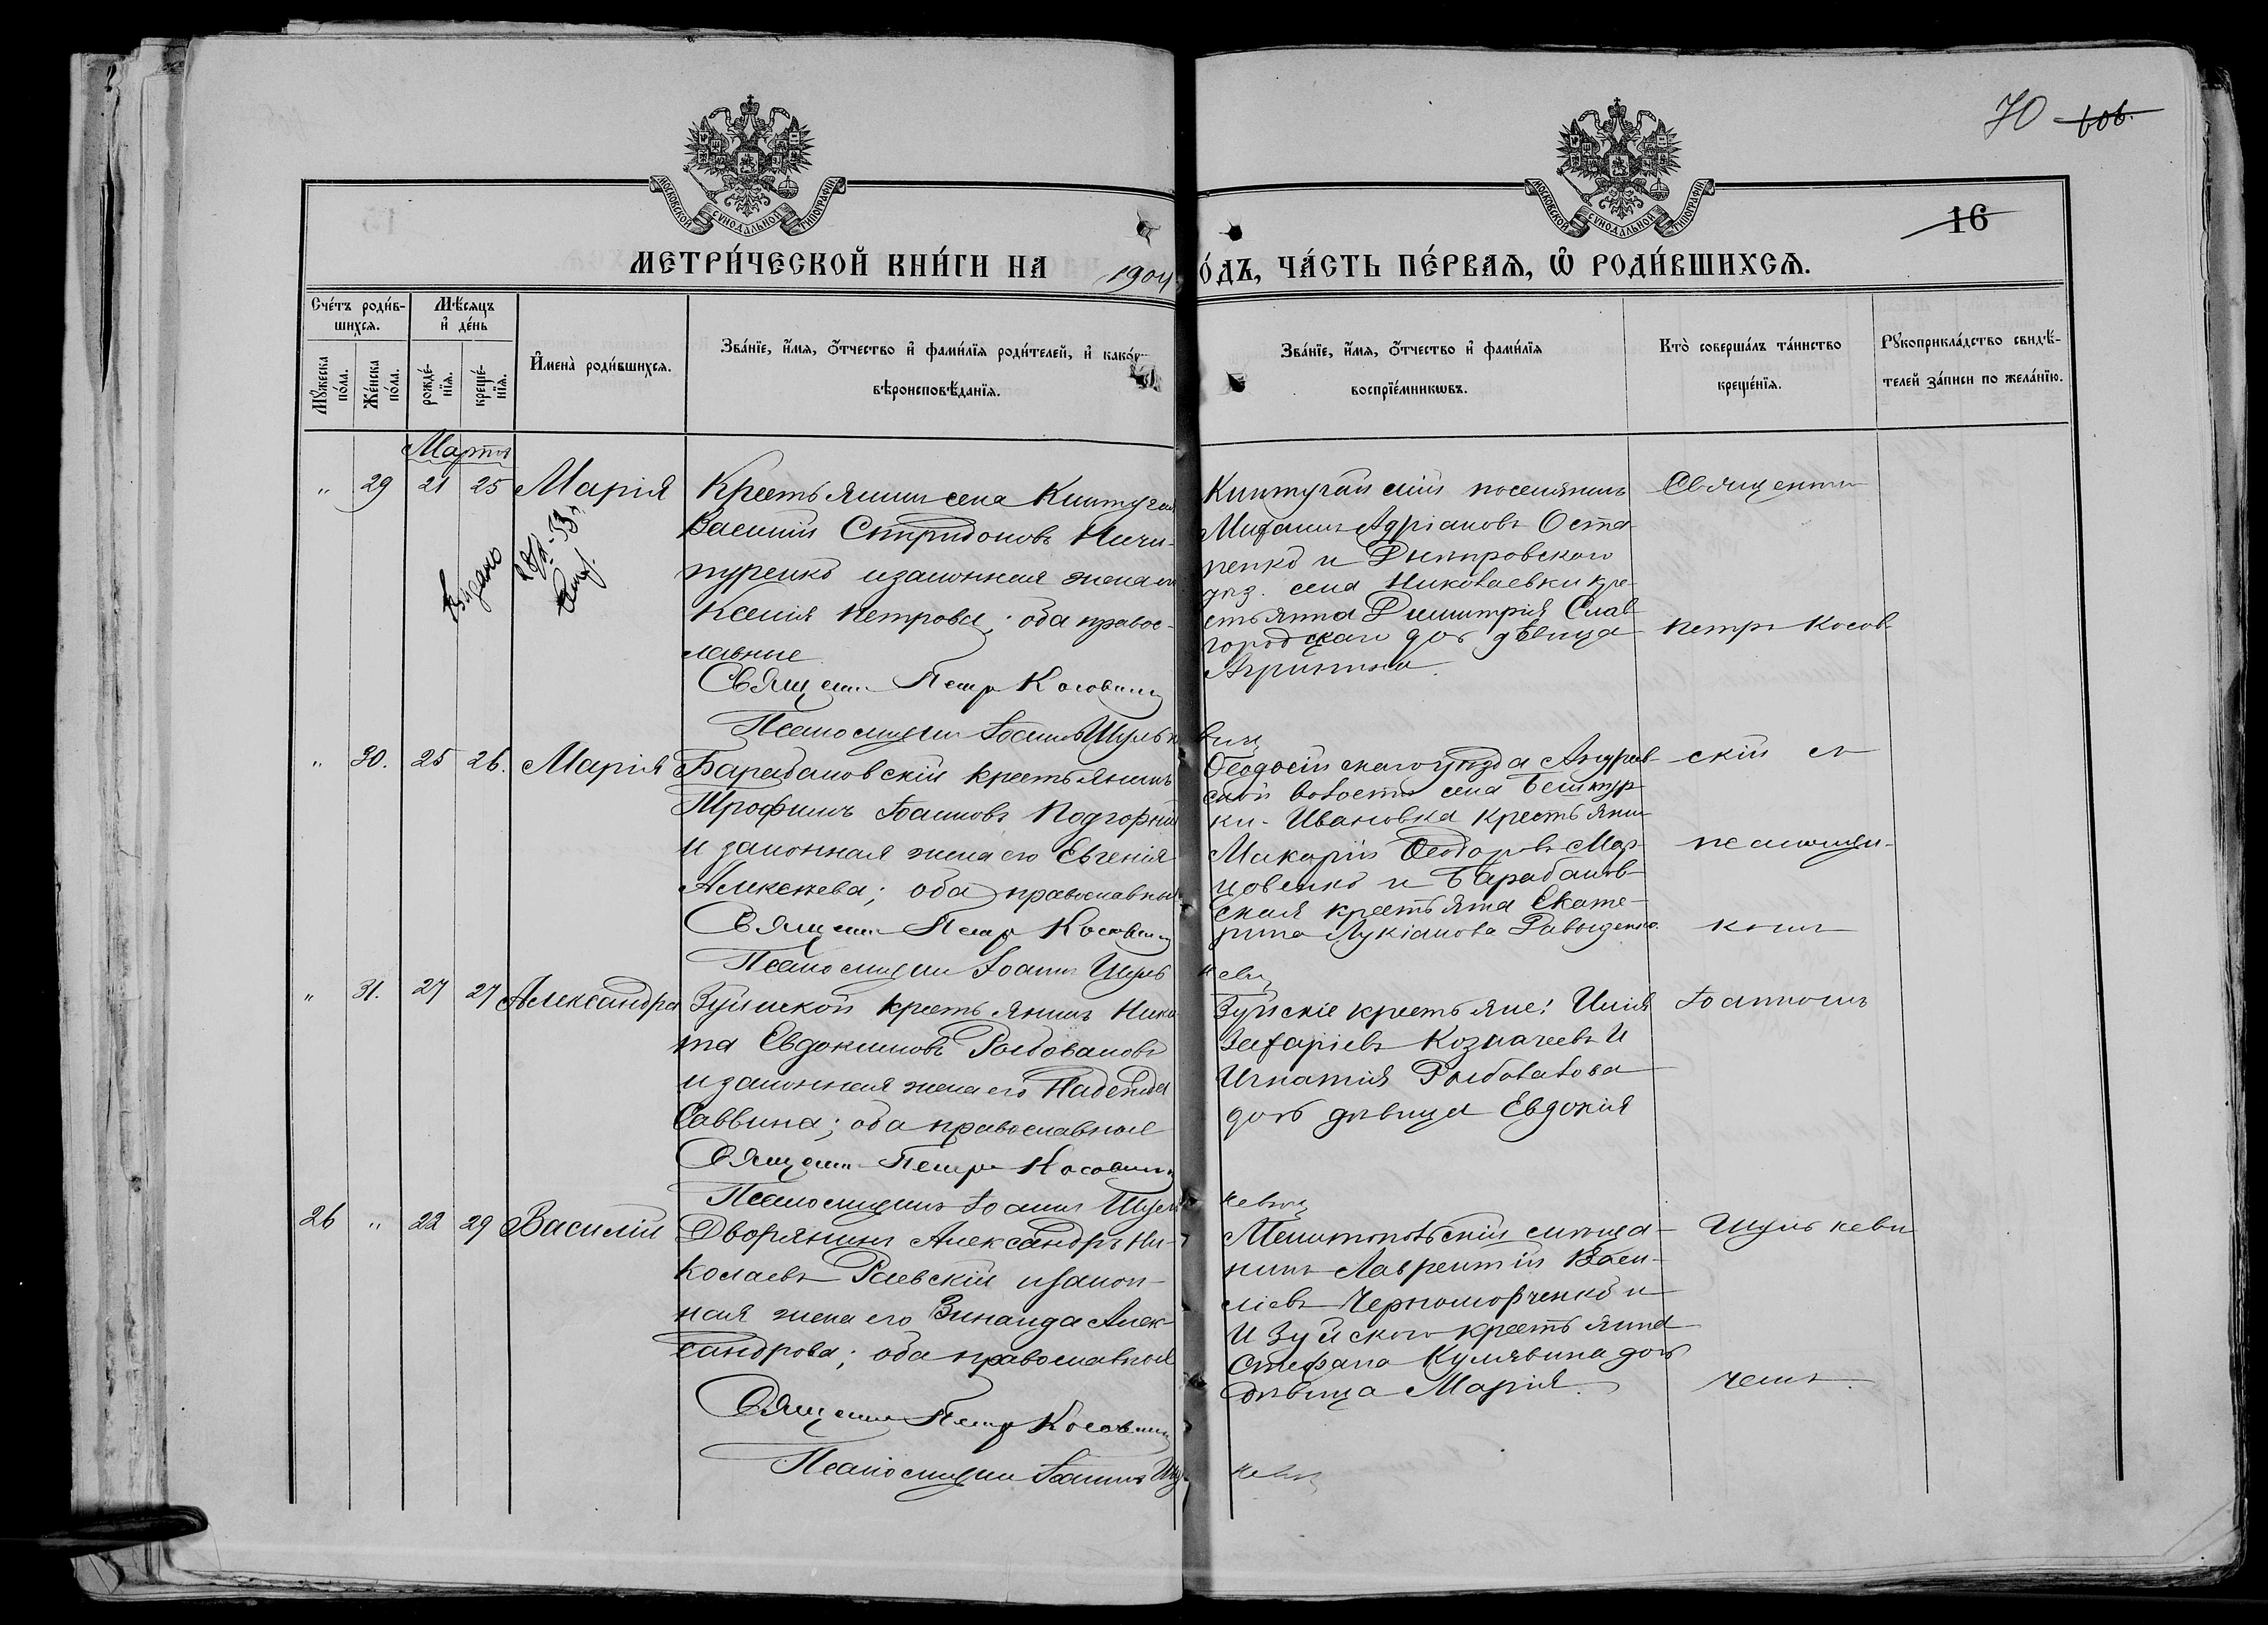 70 606.
МОСКОВСКОЙ СѴНОДАЛЬНОЙ ТИПОГРАФІИ
МОСКОВСКОЙ СѴНОДАЛЬНОЙ ТИПОГРАФІИ
16
МЕТРИ́ЧЕСКОЙ КНИ́ГИ НА 1904 О́ДЪ, ЧА́СТЬ ПЕ́РВАѦ, Ѡ РОДИ́ВШИХСѦ.
Сче́тъ роди́в-
шихсѧ.
Мꙋ́жеска по́ла.
Же́нска по́ла.
Мѣ́сяцъ
и҆ де́нь
рожде́-
нїѧ.
креще́-
нїѧ.
И҆мена̀ роди́вшихсѧ.
Зва́нїе, и҆́мѧ, ѻ҆́тчество и҆ фами́лїѧ роди́телей, и҆ како́гѡ
вѣроисповѣ́данїѧ.
Зва́нїе, и҆́мѧ, ѻ҆́тчество и҆ фами́лїѧ
воспрїе́мникѡвъ.
Кто̀ соверша́лъ та́инство
креще́нїѧ.
Рꙋкоприкла́дство свидѣ́-
телей за́писи по жела́нїю.
Марта
" 29 21 25 Марія
Выдано
Крестьянинъ села Кинтугай
Василій Спиридоновъ Ничи-
пуренко и законная жена его
Ксенія Петрова; оба правос-
лавные
Священ. Петръ Косовскій
Псаломщикъ Іоаннъ Шульк
Кинтугайскій поселянинъ
Михаилъ Адріановъ Оста-
пенко и Днѣпровскаго
уѣз. села Николаевки кре-
стьянина Димитрія Слав
городскаго дочь дѣвица
Агриппина.
вичъ
Священник
Петръ Косов-
" 30. 25 26. Марія
Барабановскій крестьянинъ
Трофимъ Іоанновъ Подгорный
и законная жена его Евгенія
Алексѣева; оба православные
Священ. Петръ Косовскій
Псаломщикъ Іоаннъ Шуль
Ѳеодосійскаго уѣзда Андреев-
ской волости села
Ивановка крестьянин
Макарій Ѳеодоровъ Мар-
ценко и Барабанов-
ская крестьянка Екате-
рина Лукіанова Давыденко.
кевич
скій съ
псаломщи-
комъ
" 31. 27 27 Александра
Зуйской крестьянинъ Ники
та Евдокимовъ Рыбоваловъ
и законная жена его Надежда
Саввина; оба православные
Священ. Петръ Косовскій
Псаломщикъ Іоаннъ Шуль
Зуйскіе крестьяне: Илія
Захаріевъ Козначеевъ и
Игнатія Рыбовалова
дочь дѣвица Евдокія
кевичъ
Іоанномъ
26 " 22 29 Василій
Дворянинъ Александръ Ни-
колаевъ Раевскій и закон-
ная жена его Зинаида Алек-
сандрова; оба православные
Священ. Петръ Косовскій
Псаломщикъ Іоаннъ Шу
Мелитопольскій мѣща-
нинъ Лаврентій Васи-
ліевъ Черноморченко и
и Зуйскаго крестьянина
Стефана Кулявина дочь
дѣвица Марія.
кевич
Шулькеви
чемъ.